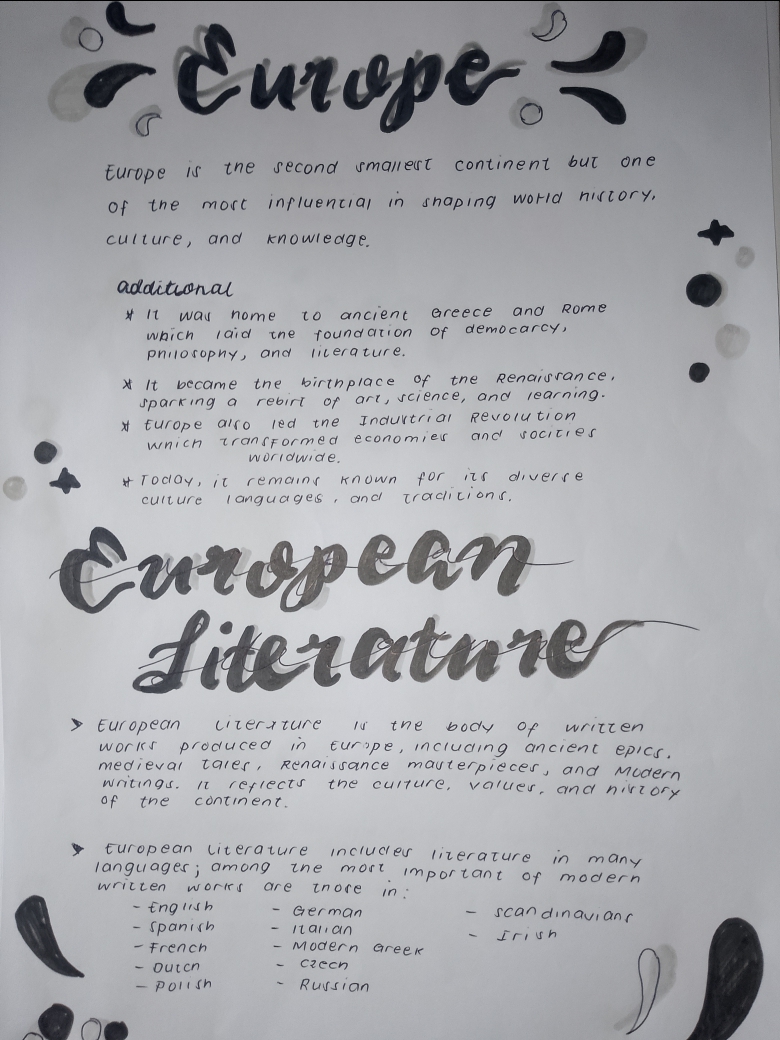 Europe
Europe is the second smallest continent but one
of the most influential in shaping world history,
culture, and knowledge.
additional
* It was home to ancient Greece and Rome
which laid the foundation of democarcy,
philosophy, and literature.
* It became the birthplace of the Renaissance,
sparking a rebirt of art, science, and learning.
* Europe also led the Industrial Revolution
which transformed economies and socities
worldwide.
* Today, it remains known for its diverse
culture languages, and traditions.
European
Literature
➤ European Literature is the body of written
works produced in Europe, including ancient epics,
medieval tales, Renaissance masterpieces, and Modern
writings. It reflects the culture, values, and history
of the continent.
➤ European Literature includes literature in many
languages; among the most important of modern
written works are those in:
- English - German - scandinavians
- Spanish - Italian - Irish
- French - Modern Greek
- Dutch - Czech
- Polish - Russian